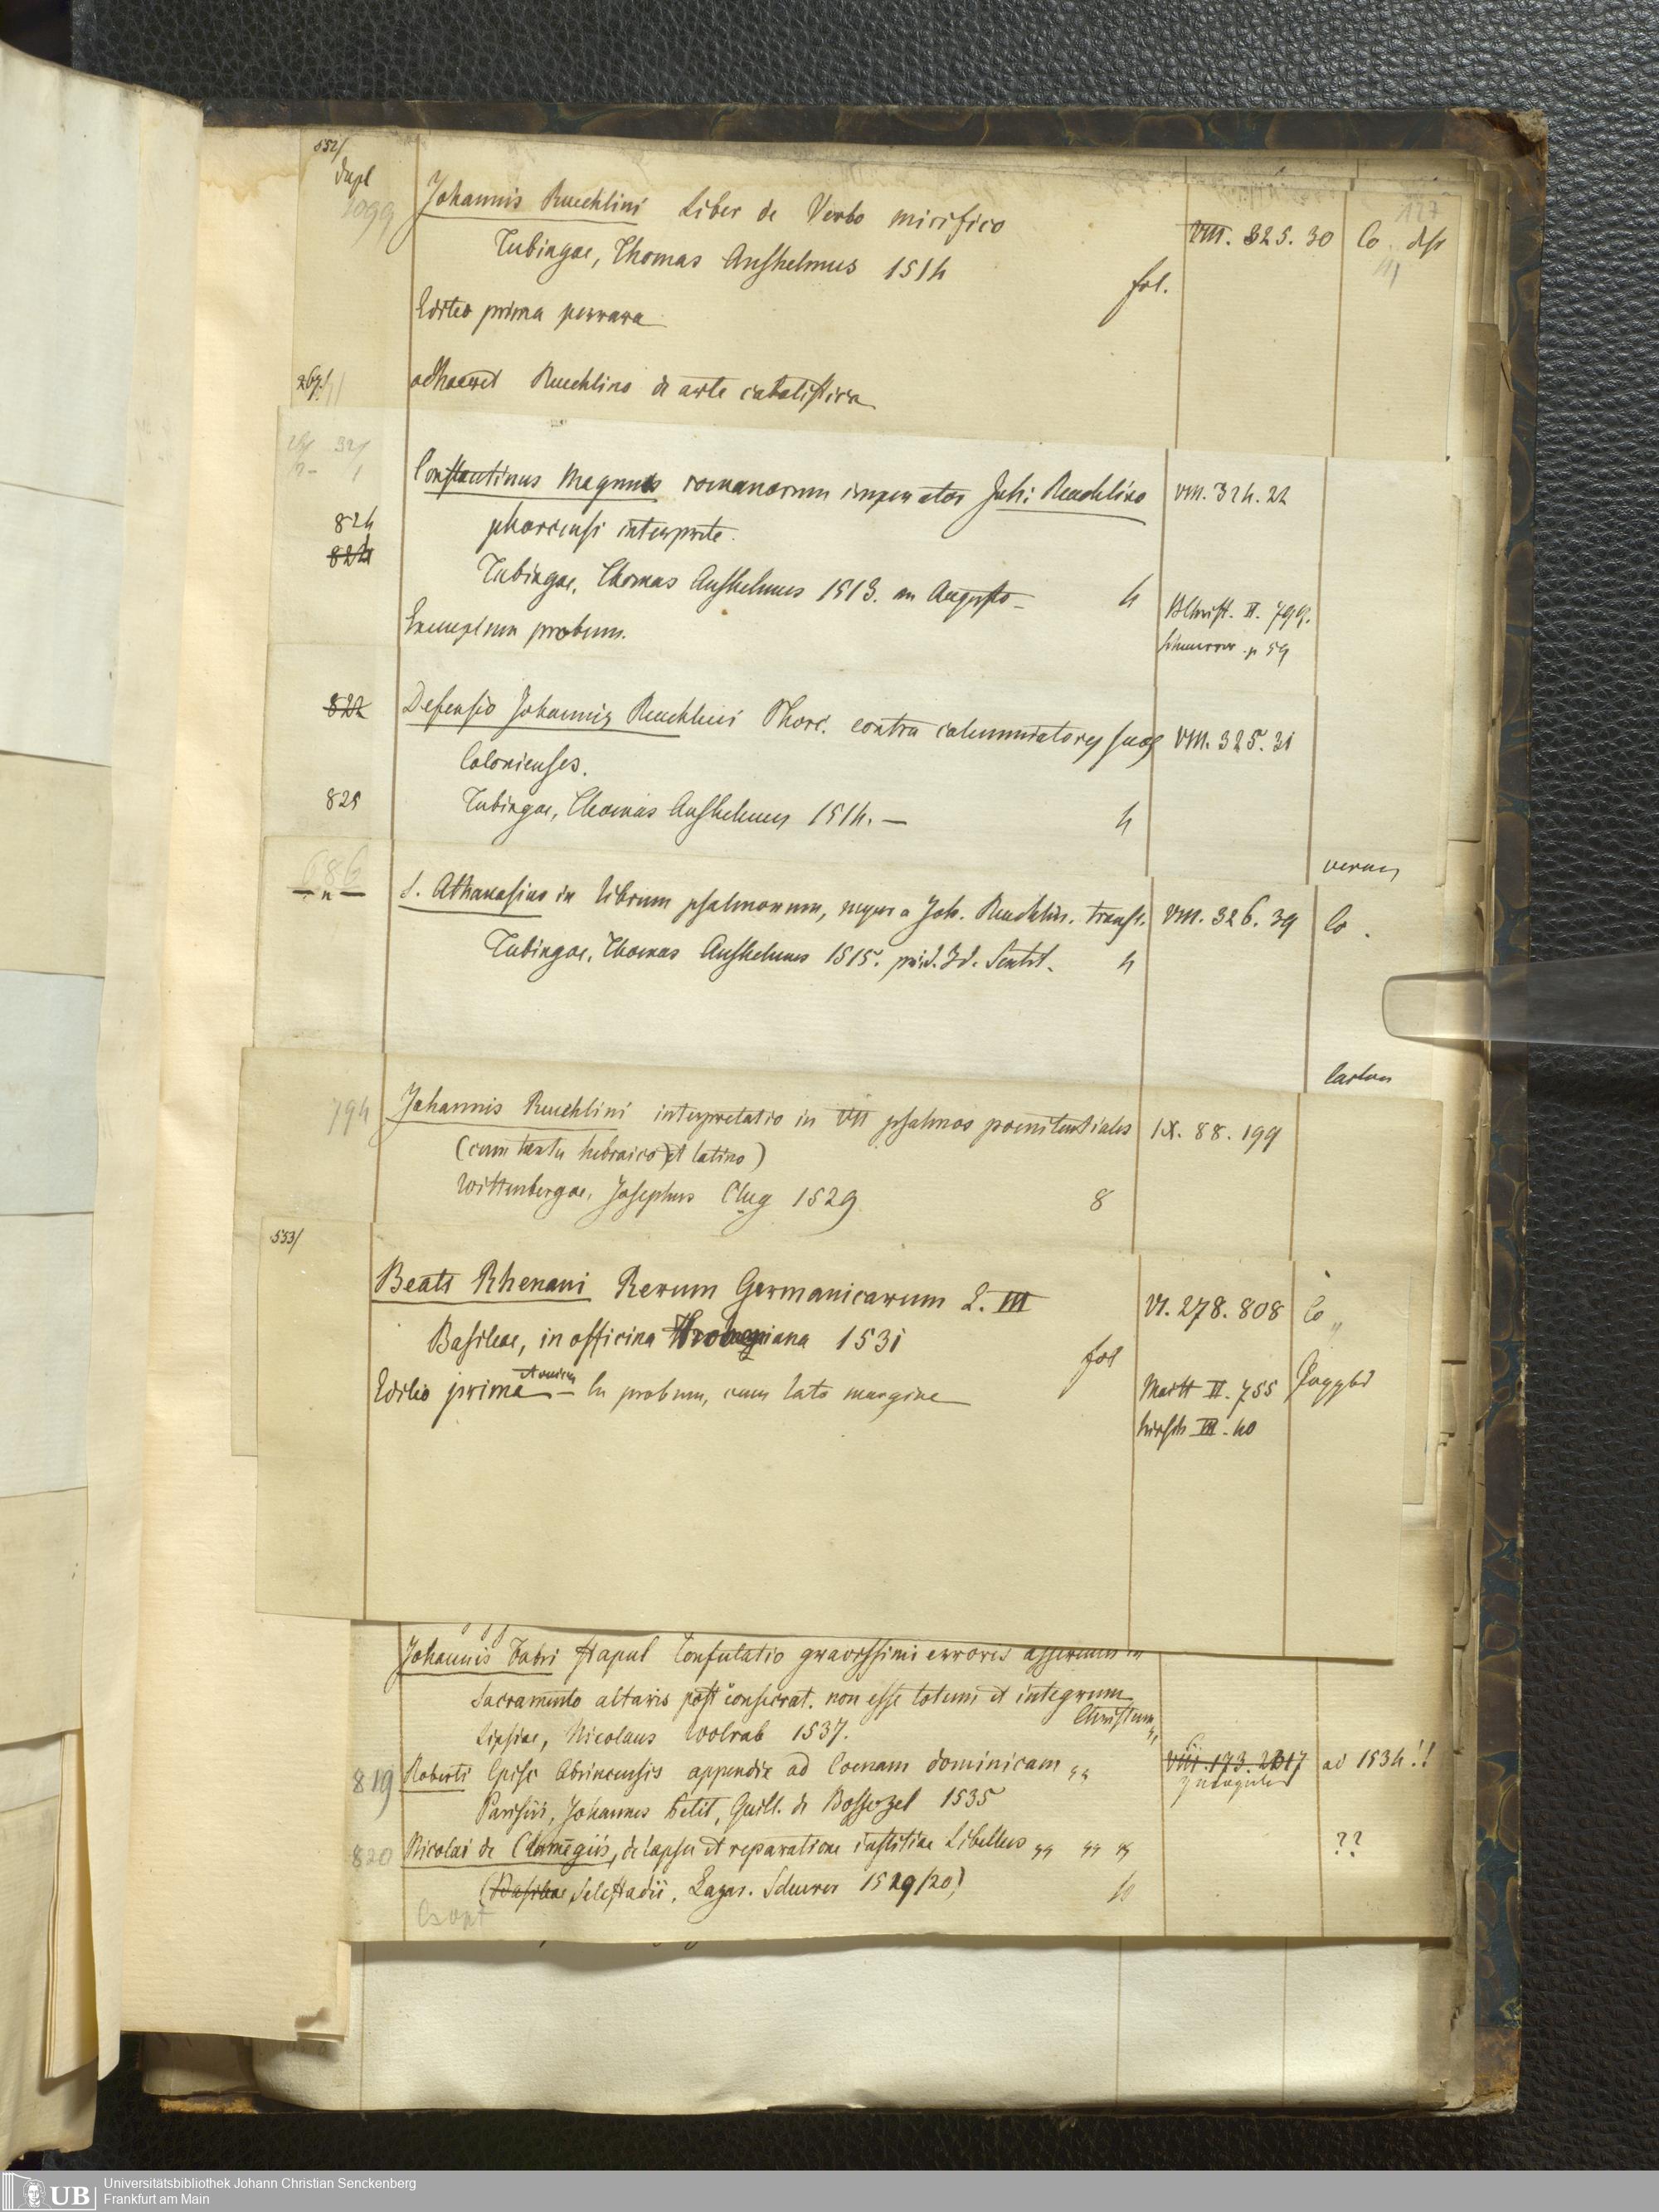 552/
dupl
1099
127
Johannis Reuchlini Liber de Verbo mirifico
VIII. 325. 30
Co
Tubingae, Thomas Anshelmus 1514
fol.
Editio prima perrara
adhaeret Reuchlino de arte cabalistica
Constantinus Magnus romanorum imperator Joh: Reuchlino
VIII. 324. 22
phorcensi interprete.
824
824
Tubingae, Thomas Anshelmus 1513. m Augusto
4
Exemplum probum.
II. 799.
p 59
822
Defensio Johannis Reuchlini Phorc. contra calumniatores suos
VIII. 325. 31
Colonienses.
825
Tubingae, Thomas Anshelmus 1514. —
4
686
— " —
S. Athanasius in librum psalmorum, nuper a Joh. Reuchlin. transl.
VIII. 326. 39
Co.
Tubingae, Thomas Anshelmus 1515. prid. Id. Septbr.
4
794
Johannis Reuchlini interpretatio in VII psalmos poenitentiales
IX. 88. 199
(cum textu hebraico et latino)
Wittenbergae, Josephus Clug 1529
8
553/
Beati Rhenani Rerum Germanicarum L. III
VI. 278. 808
Co
Basileae, in officina Frobeniana 1531
fol
Editio prima — In probum, cum lato margine
Maitt II. 755
Hirsch III. 40
Johannis Fabri Confutatio gravissimi erroris asserentis in
Sacramento altaris post consecrat. non esse totum et integrum
Christum
Lipsiae, Nicolaus Wolrab 1537.
819
Roberti Episc Abrincensis appendix ad Coenam dominicam "
VIII. 173. 2817
ad 1534!!
Parisiis, Johannes Petit, Guill. de Bossozel 1535
820
Nicolai de Clamēgiis, de lapsu et reparatione iustitiae Libellus " " "
??
(Basileae Selestadii, Lazar. Schurer 1529/20)
Universitätsbibliothek Johann Christian Senckenberg
UB
Frankfurt am Main